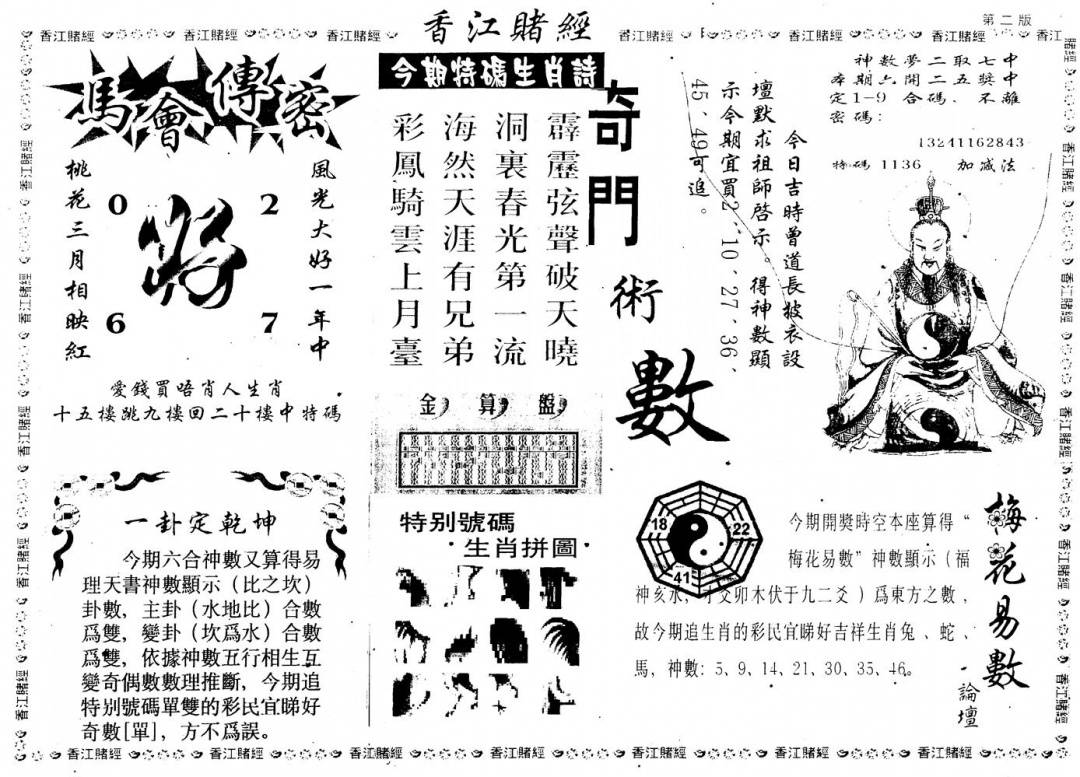 香江賭經
第二版
香江賭經 香江賭經 香江賭經 香江賭經 香江賭經 香江賭經 香江
馬會傳密
風光大好一年中
桃花三月相映紅
0 2
將
6 7
愛錢買唔肖人生肖
十五樓跳九樓回二十樓中特碼
一卦定乾坤
今期六合神數又算得易
理天書神數顯示（比之坎）
卦數，主卦（水地比）合數
爲雙，變卦（坎爲水）合數
爲雙，依據神數五行相生互
變奇偶數數理推斷，今期追
特别號碼單雙的彩民宜睇好
奇數[單]，方不爲誤。
今期特碼生肖詩
霹靂弦聲破天曉
洞裏春光第一流
海然天涯有兄弟
彩鳳騎雲上月臺
金算盤
特别號碼
生肖拼圖
奇門術數
今日吉時曾道長披衣設
壇默求祖師啓示。得神數顯
示今期宜買2、10、27、36、
45、49可追。
神數夢二取七中
本期六開二五獎中
定1-9合碼．不離
密碼：
13241162843
特碼1136 加减法
18 22
41
梅花易數
論壇
今期開獎時空本座算得“
梅花易數”神數顯示（福
神亥水，才爻卯木伏于九二爻）爲東方之數，
故今期追生肖的彩民宜睇好吉祥生肖兔、蛇、
馬，神數：5、9、14、21、30、35、46。
香江賭經 香江賭經 香江賭經 香江賭經 香江賭經 香江賭經 香江賭經